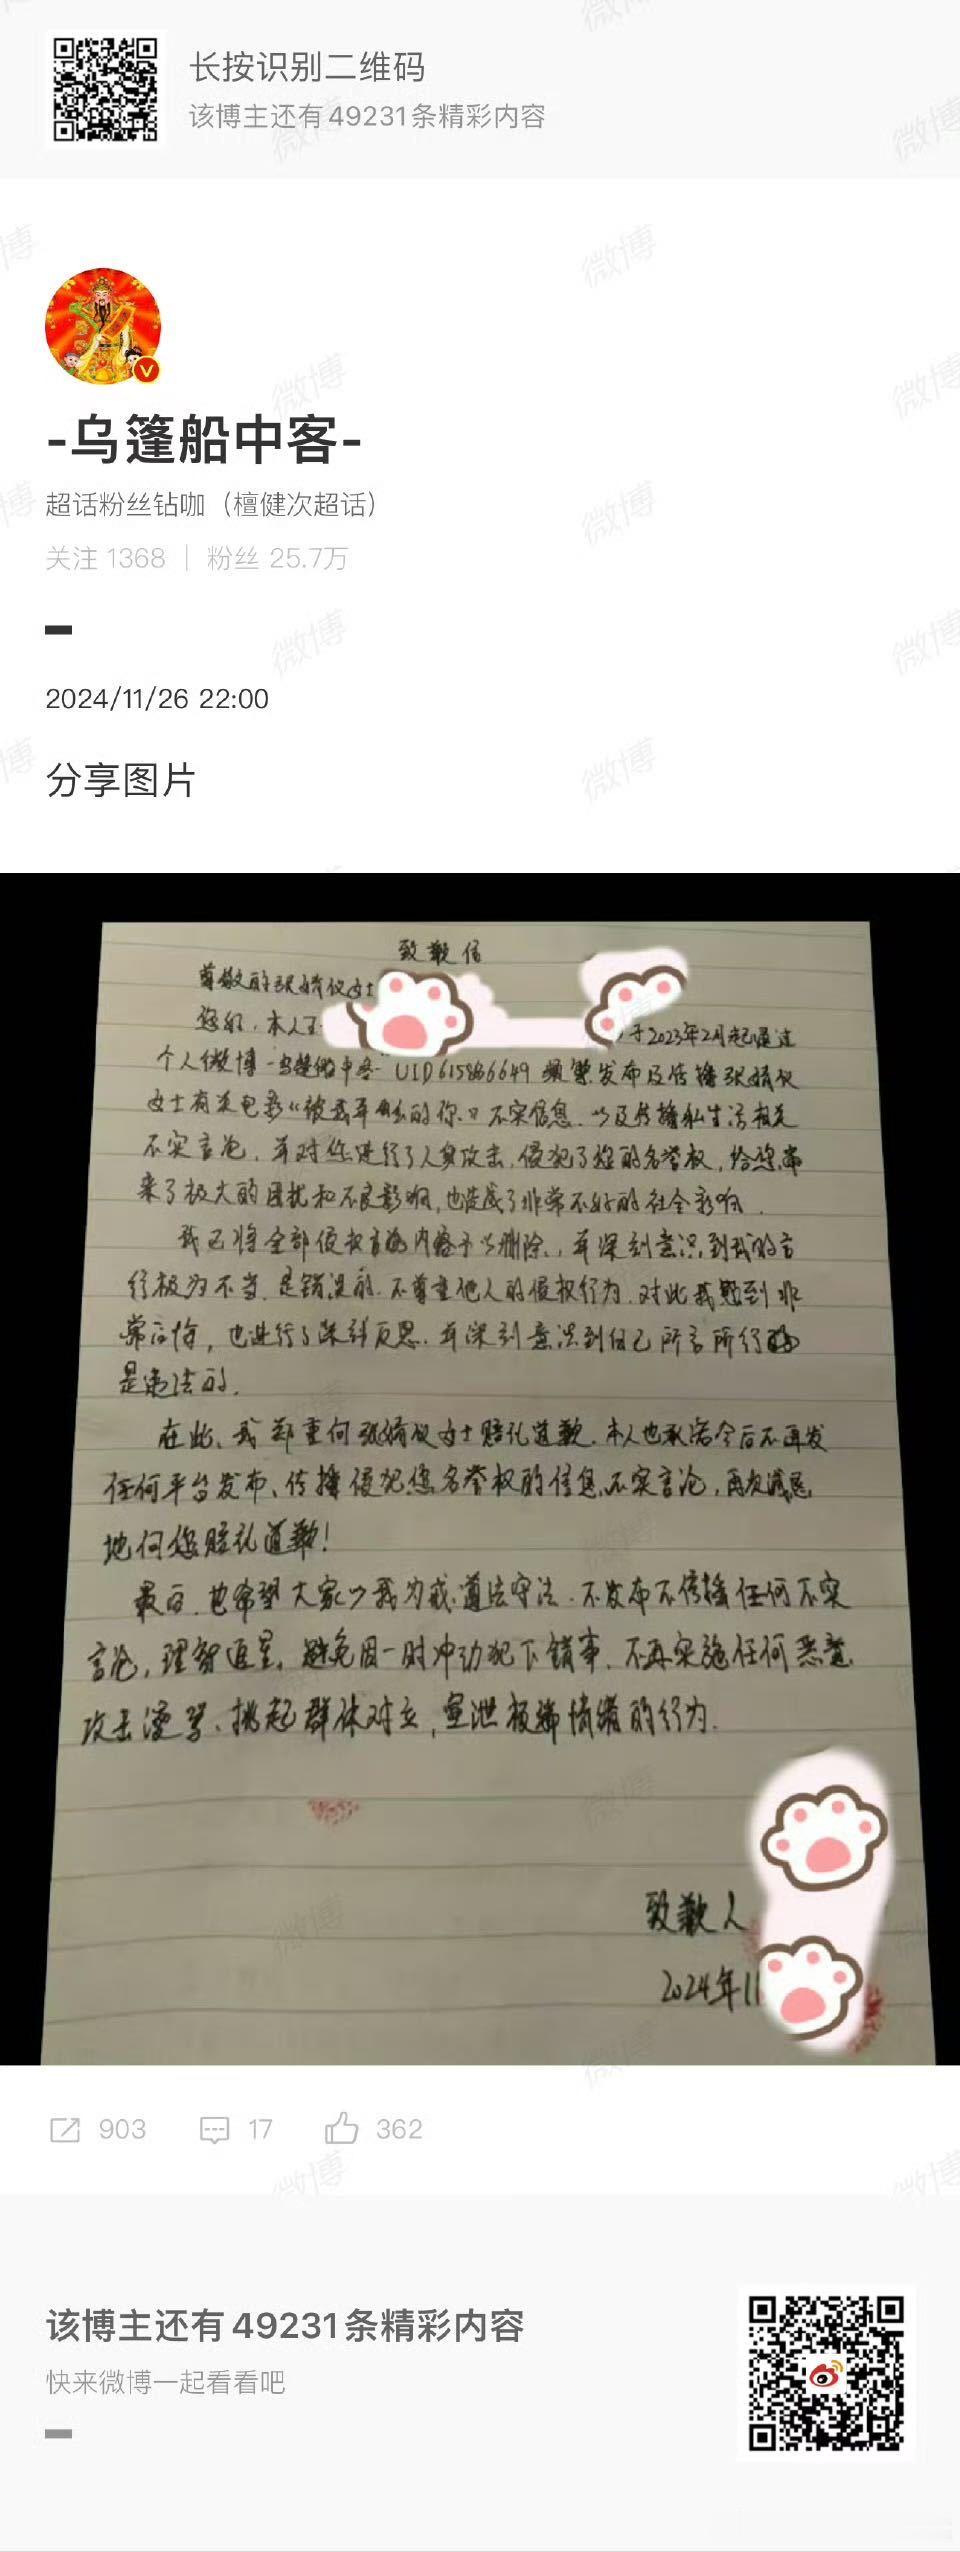 长按识别二维码
该博主还有49231条精彩内容
-乌篷船中客-
超话粉丝钻咖（檀健次超话）
关注 1368 | 粉丝 25.7万
2024/11/26 22:00
分享图片
致歉信
尊敬的张婧仪女士
您好，本人王 于2023年2月起通过
个人微博-乌篷船中客- UID 频繁发布及传播张婧仪
女士有关电影《被我弄丢的你》不实信息，以及传播私生活相关
不实言论，并对您进行了人身攻击，侵犯了您的名誉权，给您带
来了极大的困扰和不良影响，也造成了非常不好的社会影响．
我已将全部侵权 内容予以删除，并深刻意识到我的言
行极为不当，是错误的，不尊重他人的侵权行为．对此我感到非
常 ，也进行了深刻反思．并深刻意识到自己所言所行
是违法的．
在此，我郑重向张婧仪女士赔礼道歉．本人也承诺今后不再发
任何平台发布、传播侵犯您名誉权的信息、不实言论，再次诚恳
地向您赔礼道歉！
最后，也希望大家以我为戒，遵法守法．不发布不传播任何不实
言论，理智追星，避免因一时冲动犯下错事．不再实施任何恶意
攻击谩骂、挑起群体对立，宣泄极端情绪的行为．
致歉人
2024年11
903
17
362
该博主还有49231条精彩内容
快来微博一起看看吧
微博